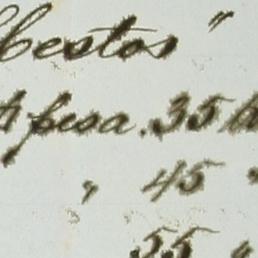 Cestos "
1 pesa. 35 k
" 45 "
55 "